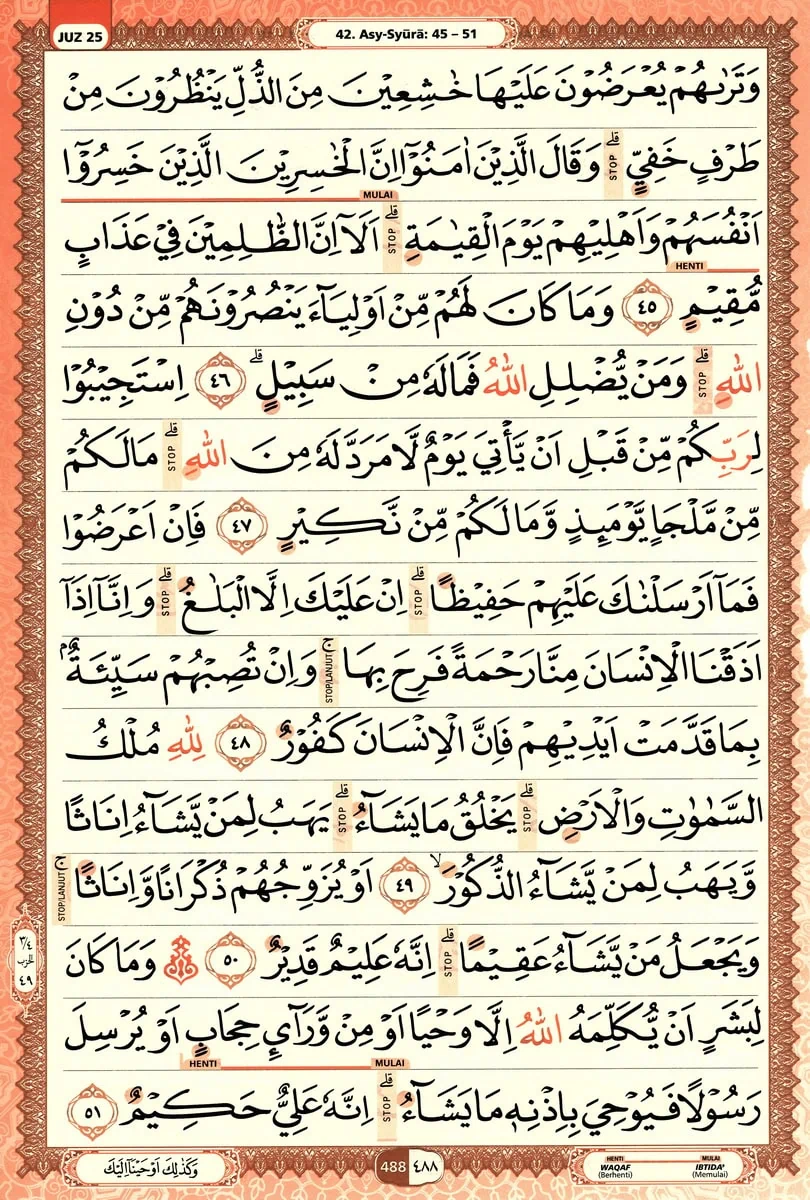 JUZ 25
42. Asy-Syūrā: 45 – 51
وَتَرٰىهُمْ يُعْرَضُوْنَ عَلَيْهَا خٰشِعِيْنَ مِنَ الذُّلِّ يَنْظُرُوْنَ مِنْ
طَرْفٍ خَفِيٍّۗ STOP وَقَالَ الَّذِيْنَ اٰمَنُوْٓا اِنَّ الْخٰسِرِيْنَ الَّذِيْنَ خَسِرُوْٓا
MULAI
اَنْفُسَهُمْ وَاَهْلِيْهِمْ يَوْمَ الْقِيٰمَةِۗ STOP اَلَآ اِنَّ الظّٰلِمِيْنَ فِيْ عَذَابٍ
HENTI
مُّقِيْمٍ ٤٥ وَمَا كَانَ لَهُمْ مِّنْ اَوْلِيَاۤءَ يَنْصُرُوْنَهُمْ مِّنْ دُوْنِ
اللّٰهِۗ STOP وَمَنْ يُّضْلِلِ اللّٰهُ فَمَا لَهٗ مِنْ سَبِيْلٍۗ ٤٦ اِسْتَجِيْبُوْا
لِرَبِّكُمْ مِّنْ قَبْلِ اَنْ يَّأْتِيَ يَوْمٌ لَّا مَرَدَّ لَهٗ مِنَ اللّٰهِۗ STOP مَا لَكُمْ
مِّنْ مَّلْجَاٍ يَّوْمَىِٕذٍ وَّمَا لَكُمْ مِّنْ نَّكِيْرٍ ٤٧ فَاِنْ اَعْرَضُوْا
فَمَآ اَرْسَلْنٰكَ عَلَيْهِمْ حَفِيْظًاۗ STOP اِنْ عَلَيْكَ اِلَّا الْبَلٰغُۗ STOP وَاِنَّآ اِذَآ
اَذَقْنَا الْاِنْسَانَ مِنَّا رَحْمَةً فَرِحَ بِهَاۚ STOP/LANJUT وَاِنْ تُصِبْهُمْ سَيِّئَةٌ ۢ
بِمَا قَدَّمَتْ اَيْدِيْهِمْ فَاِنَّ الْاِنْسَانَ كَفُوْرٌ ٤٨ لِلّٰهِ مُلْكُ
السَّمٰوٰتِ وَالْاَرْضِۗ STOP يَخْلُقُ مَا يَشَاۤءُۗ STOP يَهَبُ لِمَنْ يَّشَاۤءُ اِنَاثًا
وَّيَهَبُ لِمَنْ يَّشَاۤءُ الذُّكُوْرَۙ ٤٩ اَوْ يُزَوِّجُهُمْ ذُكْرَانًا وَّاِنَاثًاۚ STOP/LANJUT
وَيَجْعَلُ مَنْ يَّشَاۤءُ عَقِيْمًاۗ STOP اِنَّهٗ عَلِيْمٌ قَدِيْرٌ ٥٠ ۞ وَمَا كَانَ
٣/٤ الحزب ٤٩
لِبَشَرٍ اَنْ يُّكَلِّمَهُ اللّٰهُ اِلَّا وَحْيًا اَوْ مِنْ وَّرَاۤئِ حِجَابٍ اَوْ يُرْسِلَ
MULAI HENTI
رَسُوْلًا فَيُوْحِيَ بِاِذْنِهٖ مَا يَشَاۤءُۗ STOP اِنَّهٗ عَلِيٌّ حَكِيْمٌ ٥١
وَكَذٰلِكَ اَوْحَيْنَآ اِلَيْكَ
488 ٤٨٨
HENTI WAQAF (Berhenti)
MULAI IBTIDA' (Memulai)